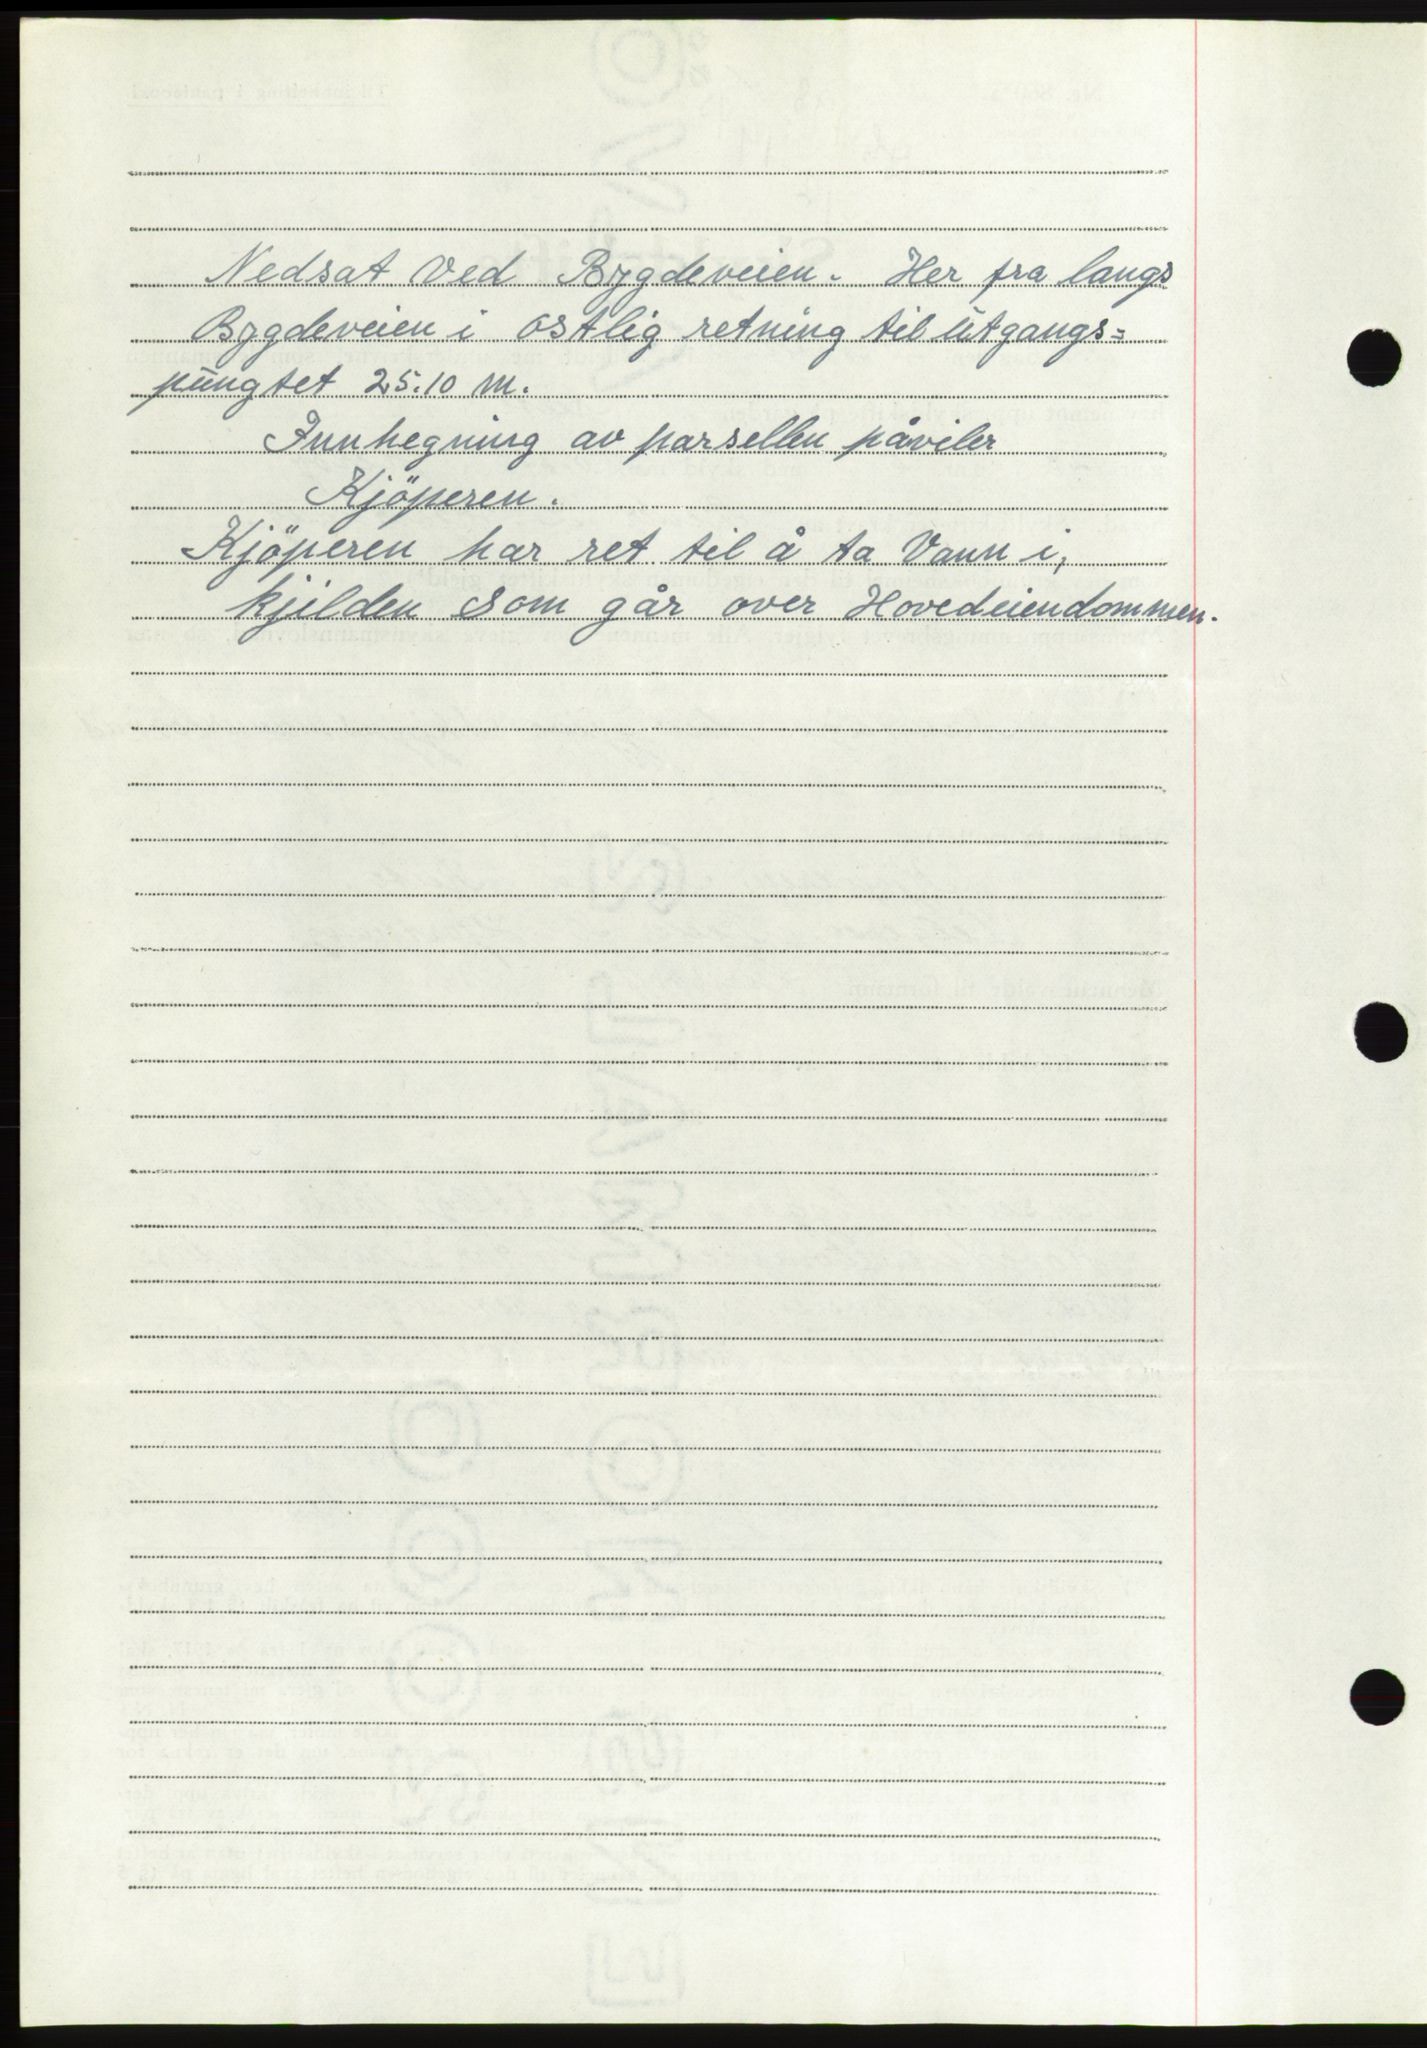 Nedsat Ved Bygdeveien. Her fra langs
Bygdeveien i ostlig retning til utgangs=
pungtet 25.10 m.
Innhegning av parsellen påviler
Kjöperen.
Kjöperen har ret til å ta Vann i,
kjilden som går over Hovedeiendommen.